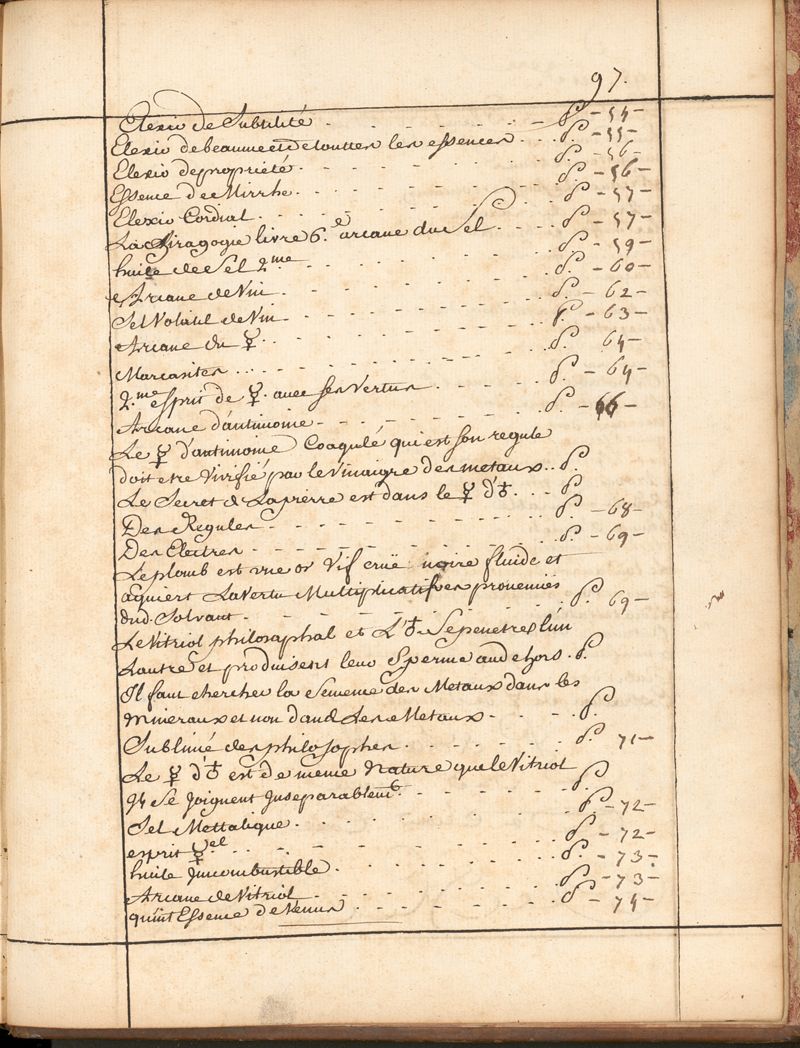 97.
Elexir de Subtilité - - - - - - P. - 54 -
Elexir de beaume et de touttes les essences - - - P. - 55 -
Elexir de propriété - - - - - - P. - 56 -
Essence de Mirrhe - - - - - - P. - 56 -
Elexir Cordial - - - - - - P. - 57 -
La Chiragogie livre 6.e arcane du Sel - - - - P. - 57 -
huile de Sel 2.me - - - - - - P. - 59 -
Arcane de Vin - - - - - - P. - 60 -
Sel Volatil de Vin - - - - - - P. - 62 -
Arcane du ☿ - - - - - - P. - 63 -
Marcasites - - - - - - P. 64 -
2.me esprit de ☿. avec ses Vertus - - - - P. - 64 -
Arcane d'antimoine - - - - - - P. - 66 -
Le ☿ d'antimoine Coagulé qui est son regule
doit etre Vivifié par le Vinaigre des metaux . . P.
Le Secret de La pierre est dans le ☿ d'♁ . . . P.
Des Regules - - - - - - P. - 68 -
Des Electres - - - - - - P. - 69 -
Le plomb est une or Vif crüe noire fluide et
aquiert La Vertu Multiplicatif en
dud. Solvant - - - - - - P. 69 -
Le Vitriol philosophal et L'♁ Se penetres l'un
L'autre et produisent leur Sperme au dehors . P.
Il faut chercher la Semence des Metaux dans les
mineraux et non dans Les Metaux - - - - P.
Sublimé des philosophes - - - - - P. 71 -
Le ☿ d'♁ est de meme Nature que le Vitriol
Il Se Joignent Inseparablemt. - - - - P.
Sel Mettalique - - - - - - P. - 72 -
esprit ☿el - - - - - - P. - 72 -
huile Incombustible - - - - - - P. - 73 -
Arcane de Vitriol - - - - - - P. - 73 -
quint Essence de Venus - - - - - - P. - 74 -